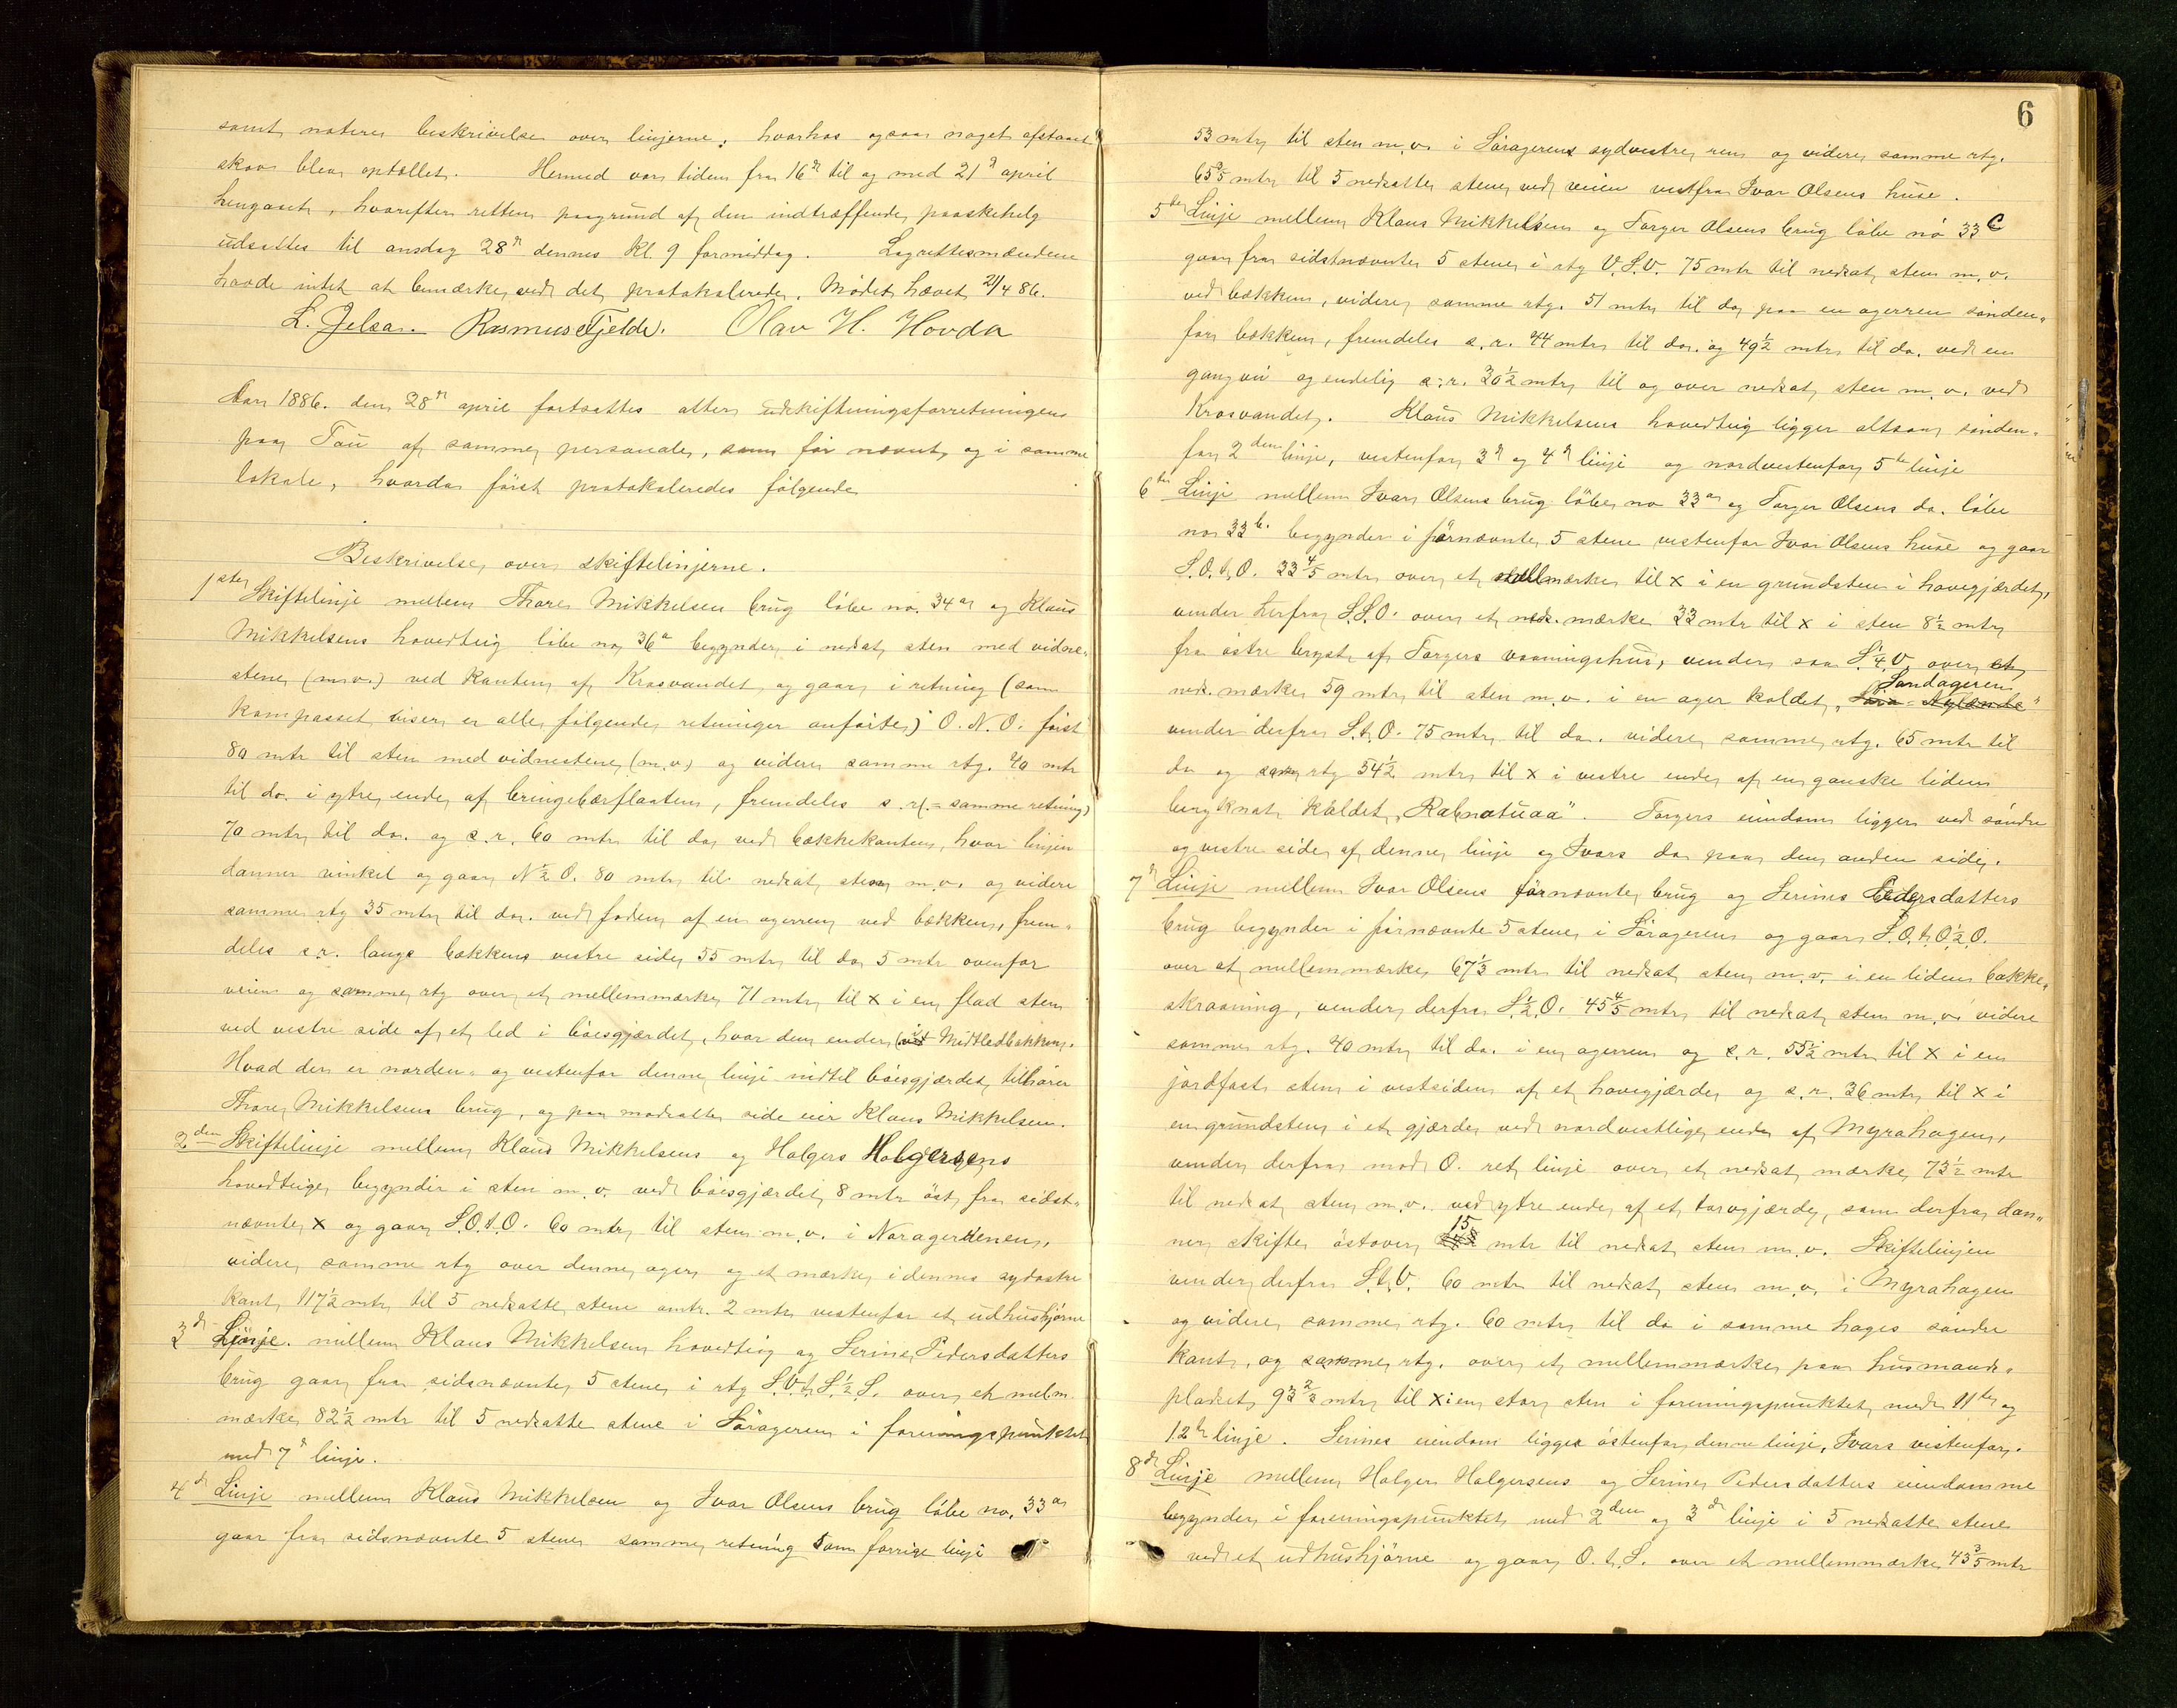 samt noteres beskrivelse over linjerne; hvorhos ogsaa noget afstaaet
skov blev optællet. Hermed var tiden fra 16de til og med 21de april
hengaaet, hvorefter retten paagrund af den indtræffende paaskehelg
udsattes til onsdag 28de dennes kl. 9 formiddag. Lagrettesmændene
havde intet at bemærke ved det protokolerede. Mødet hævet 21/4 86.
L. Jelsa. Rasmus Tjelde. Olav H. Hovda
Aar 1886. den 28de april fortsattes atter udskiftningsforretningen
paa Tau af samme personale, som før nævnt og i samme
lokale, hvorda først protokoleredes følgende
Beskrivelse over skiftelinjerne.
1ste Skiftelinje mellem Thore Mikkelsen brug løbe no. 34a og Klaus
Mikkelsens hovedteig løbe no 36a begynder i nedsat sten med vidne-
stene (m.v.) ved kanten af Krosvandet og gaar i retning (som
kompasset viser er alle følgende retninger anførte) O.N.O. først
80 mtr til sten med vidnestene (m.v.) og videre samme rtg. 40 mtr
til do. i ytre ende af bringebærflaaten, fremdeles s.r. (= samme retning)
70 mtr til do. og s.r. 60 mtr til do ved bækkekanten, hvor linjen
danner vinkel og gaar N½O. 80 mtr til nedsat sten m.v. og videre
samme rtg 35 mtr til do. ved foden af en agerren ved bækken, frem-
deles s.r. langs bækkens vestre side 55 mtr til do 5 mtr ovenfor
veien og samme rtg over et mellemmærke 71 mtr til x i en flad sten
ved vestre side af et led i bøesgjærdet, hvor den ender i Midtledbakken.
Hvad der er norden- og vestenfor denne linje indtil bøesgjærdet tilhører
Thore Mikkelsens brug, og paa modsatte side eier Klaus Mikkelsen.
2den Skiftelinje mellem Klaus Mikkelsens og Holgers Holgersens
hovedteige begynder i sten m.v. ved bøesgjærdet 8 mtr øst fra sidst-
nævnte x og gaar S.O.t.O. 60 mtr til sten m.v. i Noragerrenen,
videre samme rtg over denne ager og et mærke i dennes sydøstre
kant 117½ mtr til 5 nedsatte stene omtr. 2 mtr vestenfor et udhushjørne
3de Linje. mellem Klaus Mikkelsens hovedteig og Serine Pedersdatters
brug gaar fra sidsnævnte 5 stene i rtg S.V.t.S.½S. over et melm.
mærke 82½ mtr til 5 nedsatte stene i Sørageren i foreningspunktet
med 7de linje.
4de Linje mellem Klaus Mikkelsen og Ivar Olsens brug løbe no. 33a
gaar fra sidsnævnte 5 stene samme retning som forrige linje
6
53 mtr til sten m.v. i Søragerens sydvestre ren og videre samme rtg.
65⅗ mtr til 5 nedsatte stene ved veien vestfra Ivar Olsens huse.
5te Linje mellem Klaus Mikkelsens og Torger Olsens brug løbe no 33c
gaar fra sidstnævnte 5 stene i rtg V.S.V. 75 mtr til nedsat sten m.v.
ved bækken, videre samme rtg. 51 mtr til do paa en agerren sønden-
for bækken, fremdeles s.r. 44 mtr til do. og 49½ mtr til do. ved en
gangvei og endelig s.r. 30½ mtr til og over nedsat sten m.v. ved
Krosvandet. Klaus Mikkelsens hovedteig ligger altsaa sønden-
for 2den linje, vestenfor 3de og 4de linje og nordvestenfor 5te linje
6te Linje mellem Ivar Olsens brug løbe no 33a og Torger Olsens do. løbe
no 33b. begynder i førnævnte 5 stene vestenfor Ivar Olsens huse og gaar
S.O.t.O. 33⅘ mtr over et mellmærke til x i en grundsten i havegjærdet,
vender herfra S.S.O. over et neds. mærke 33 mtr til x i sten 8½ mtr
fra østre bryst af Torgers vaaningshus, vender saa S.¼V. over et
neds. mærke 59 mtr til sten m.v. i en ager kaldet „Sandageren"
vender derfra S.t.O. 75 mtr til do. videre samme rtg. 65 mtr til
do og samme rtg 54½ mtr til x i vestre ende af en ganske liden
bergknat kaldet „Rabnatuaa". Torgers eiendom ligger ved søndre
og vestre side af denne linje og Ivars do paa den anden side.
7de Linje mellem Ivar Olsens førnævnte brug og Serines Pedersdatters
brug begynder i førnævnte 5 stene i Sørageren og gaar S.O.t.O.½O.
over et mellemmærke 67⅓ mtr til nedsat sten m.v. i en liden bakke-
skraaning, vender derfra S.½.O. 45⅘ mtr til nedsat sten m.v. videre
samme rtg. 40 mtr til do. i en agerren og s.r. 55½ mtr til x i en
jordfast sten i vestsiden af et havegjærde og s.r. 36 mtr til x i
en grundsten i et gjærde ved nordvestlige ende af Myrahagen,
vender derfra mod O. ret linje over et nedsat mærke 73½ mtr
til nedsat sten m.v. ved ytre ende af et torvgjærde, som derfra dan-
ner skifte østover 15 mtr til nedsat sten m.v. Skiftelinjen
vender derfra S.t.V. 60 mtr til nedsat sten m.v. i Myrahagen
og videre samme rtg. 60 mtr til do i samme hages søndre
kant, og samme rtg. over et mellemmærke paa husmands-
pladset 93⅔ mtr til x i en stor sten i foreningspunktet med 11te og
12te linje. Serines eiendom ligger østenfor denne linje, Ivars vestenfor.
8de Linje mellem Holger Holgersens og Serine Pedersdatters eiendomme
begynder i foreningspunktet med 2den og 3de linje i 5 nedsatte stene
ved et udhushjørne og gaar O.t.S. over et mellemmærke 43⅗ mtr